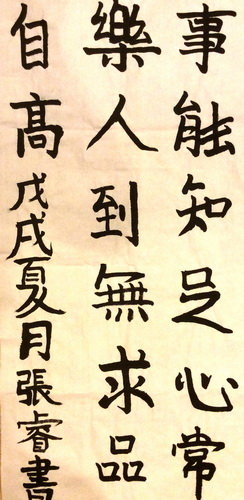 事能知足心常
樂人到無求品
自高戊戌夏月張睿書